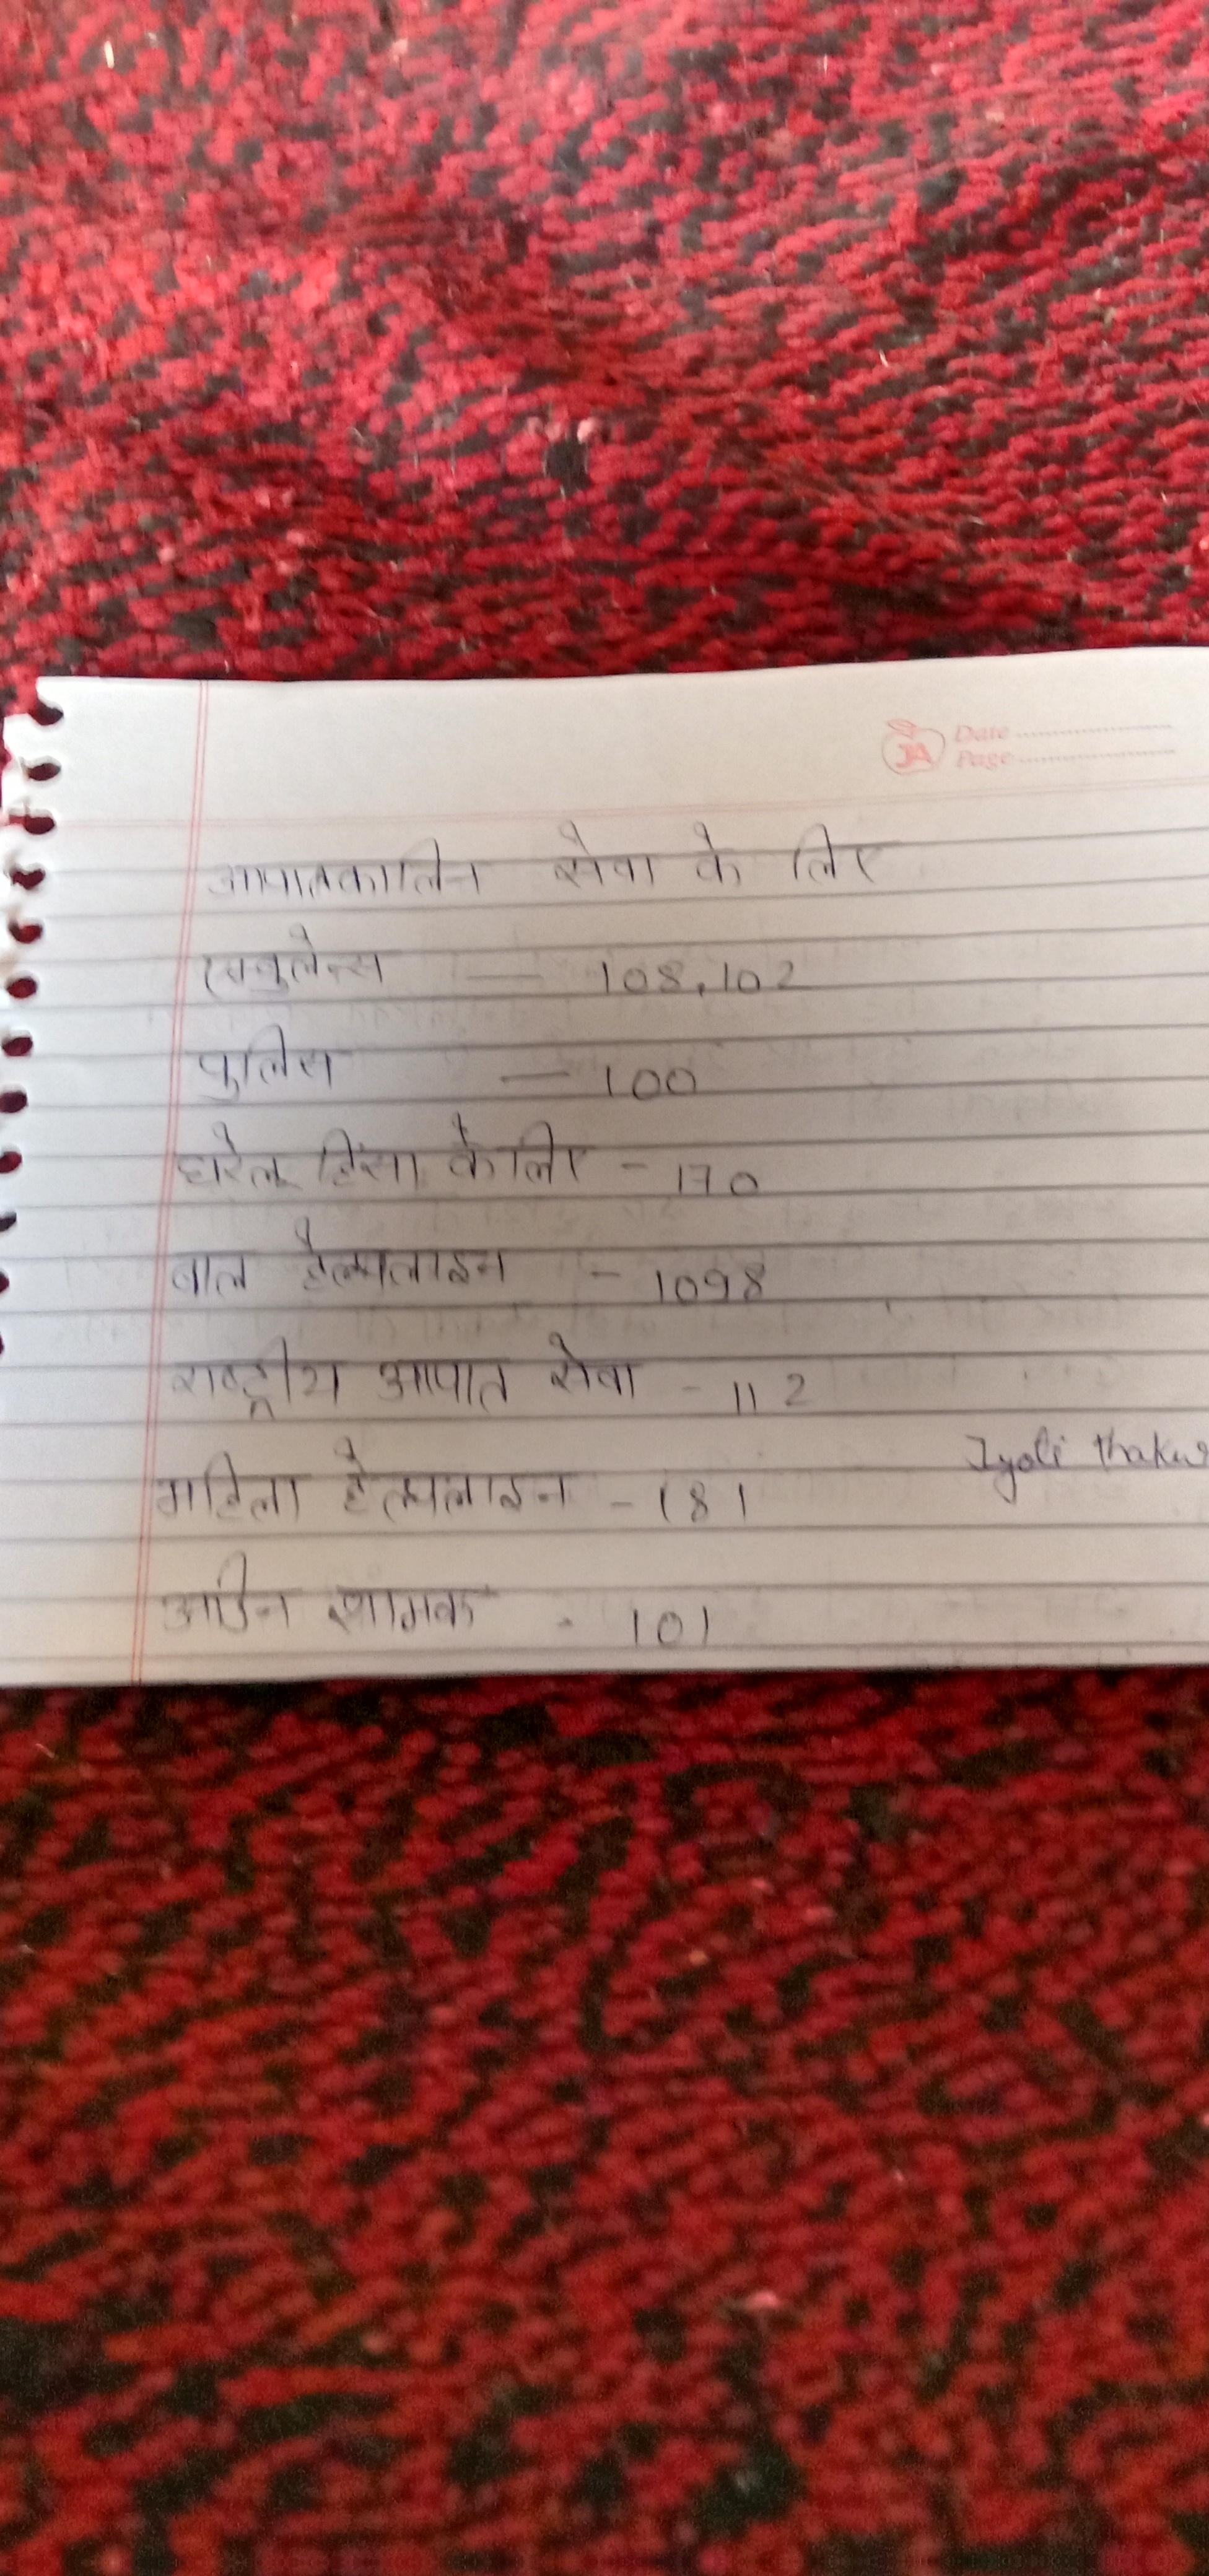 JA Date
Page
आपातकालिन सेवा के लिए
एम्बुलेन्स — 108, 102
पुलिस — 100
घरेलू हिंसा के लिए - 170
बाल हैल्पलाइन - 1098
राष्ट्रीय आपात सेवा - 112
Jyoti thakur
महिला हेल्पलाइन - 181
अग्नि शामक - 101